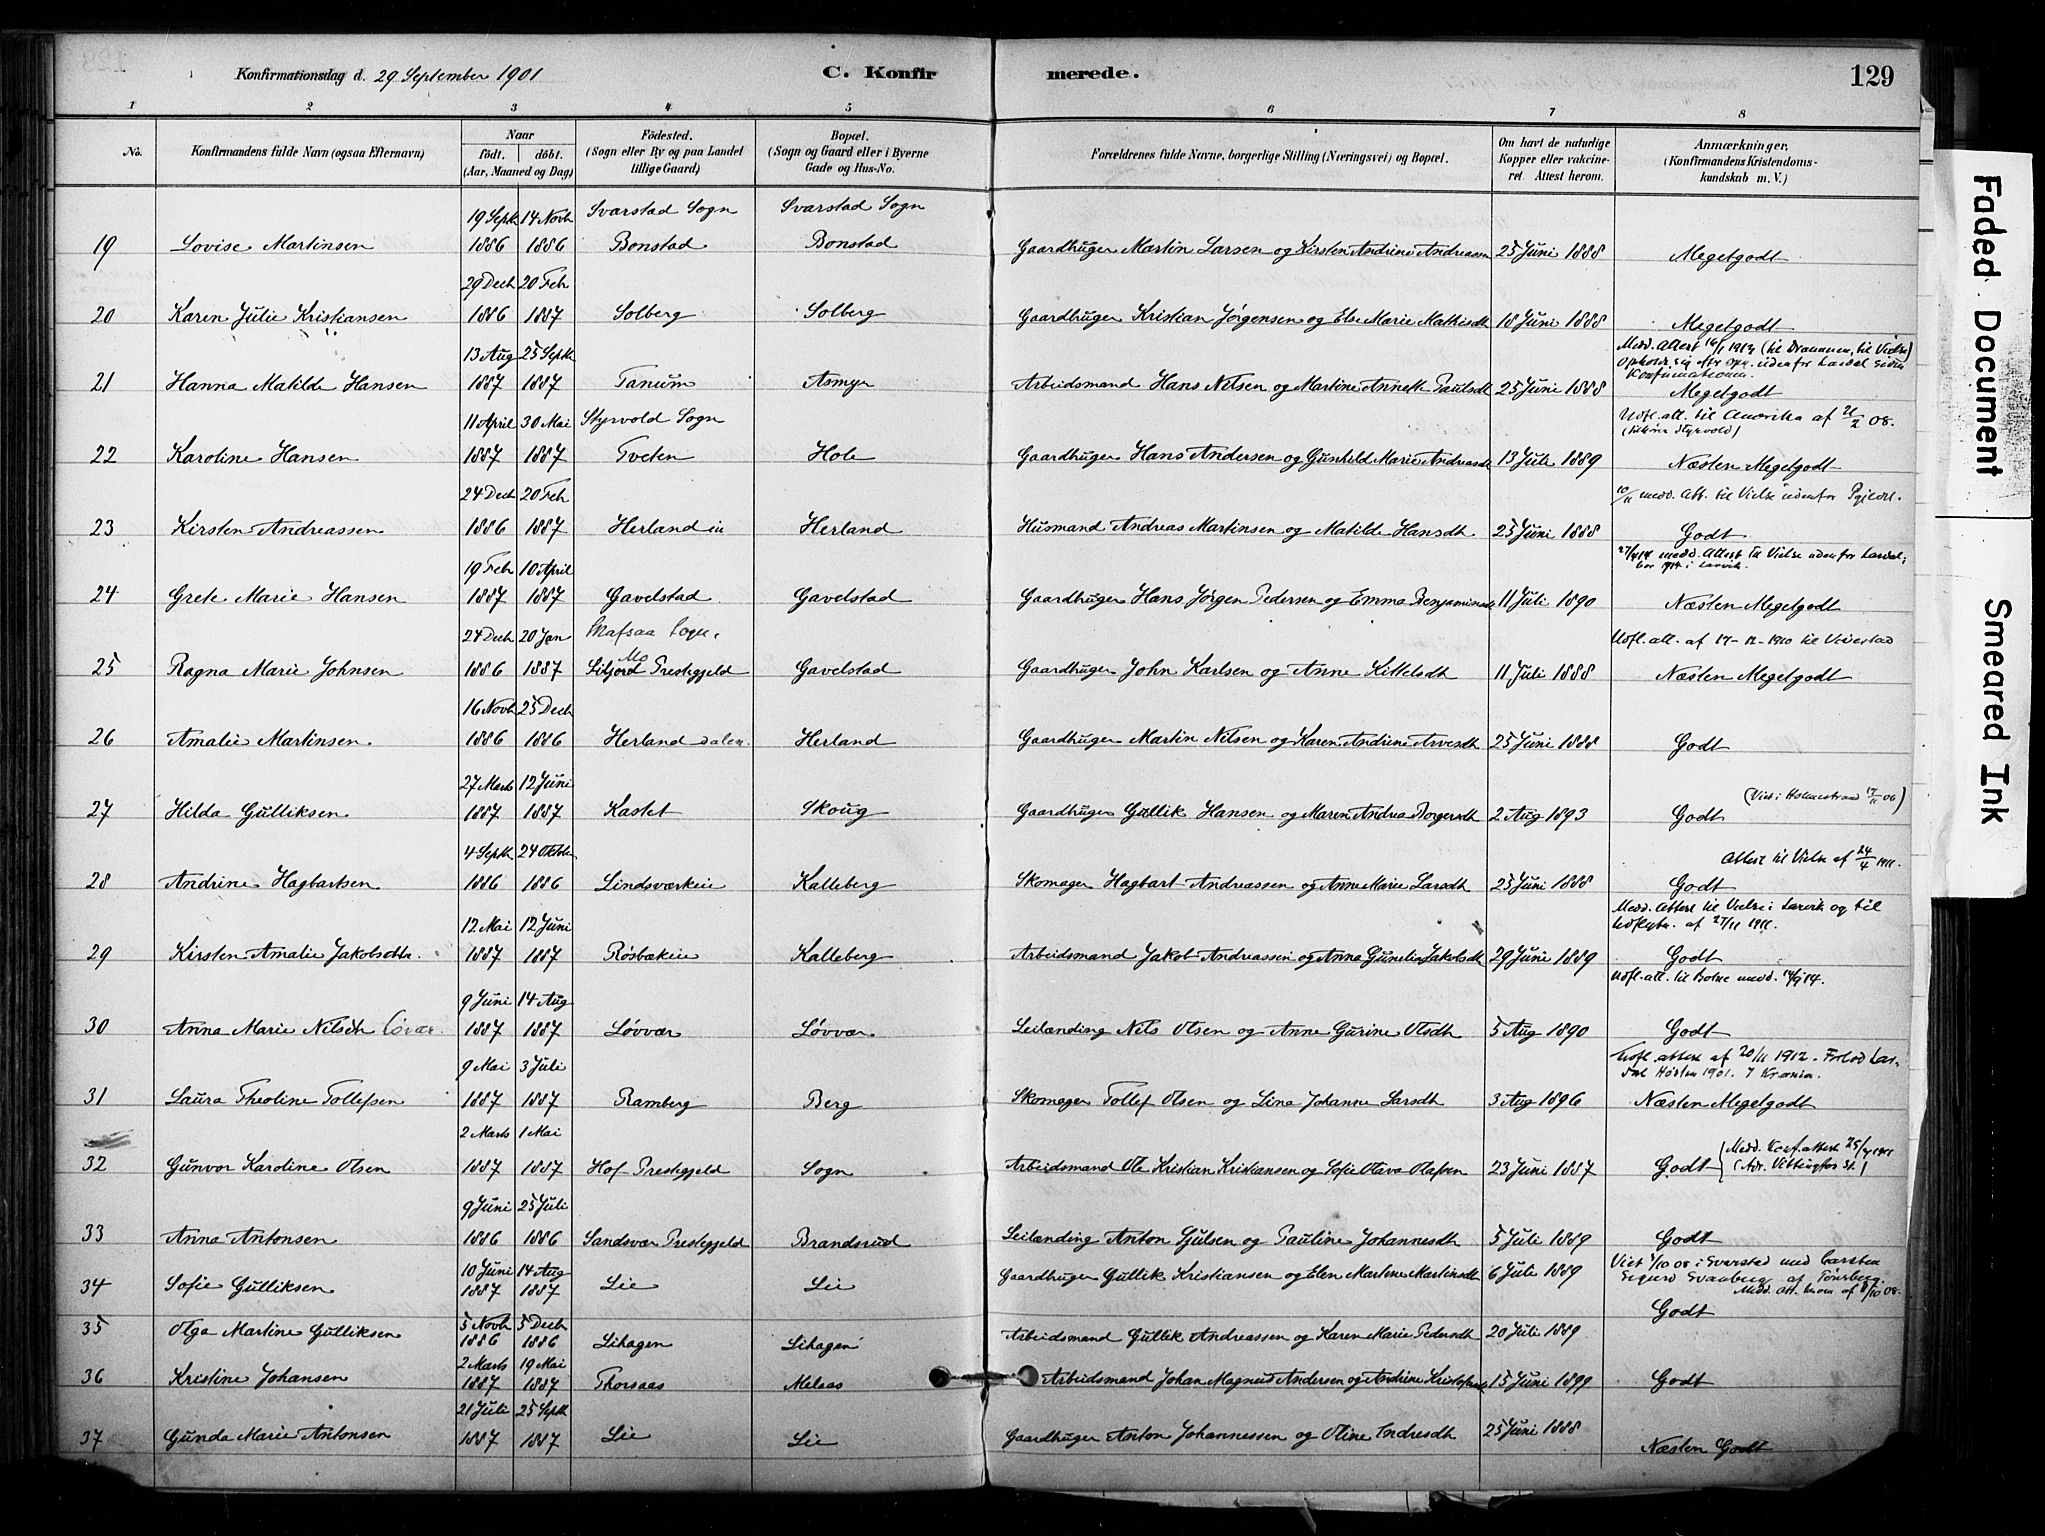 Konfirmationsdag d. 29 September 1901 C. Konfirmerede. 129
1 2 3 4 5 6 7 8
No. Konfirmandens fulde Navn (ogsaa Efternavn)
Naar
födt. döbt.
(Aar, Maaned og Dag)
Födested.
(Sogn eller By og paa Landet
tillige Gaard)
Bopæl.
(Sogn og Gaard eller i Byerne
Gade og Hus-No.
Forældrenes fulde Navne, borgerlige Stilling (Næringsvei) og Bopæl.
Om havt de naturlige
Kopper eller vakcine-
ret. Attest herom.
Anmærkninger.
(Konfirmandens Kristendoms-
kundskab m. V.)
19 Septb 14 Novb Svarstad Sogn Svarstad Sogn
19 Lovise Martinsen 1886 1886 Bonstad Bonstad Gaardbruger Martin Larsen og Kirsten Andrine Andreassen 25 Juni 1888 Megetgodt
29 Decb 20 Feb
20 Karen Julie Kristiansen 1886 1887 Solberg Solberg Gaardbruger Kristian Jørgensen og Else Marie Mathisdt 18 Juni 1888 Megetgodt
13 Aug 25 Septb
Konfirmationen.
21 Hanna Matilde Hansen 1887 1887 Tanum Asmyr Arbeidsmand Hans Nilsen og Martine Annette Paulsdt 25 Juni 1888 Megetgodt
11 April 30 Mai Styrvold Sogn Udfl. att. til Amerika af 21/2 08.
22 Karoline Hansen 1887 1887 Tveten Hole Gaardbruger Hans Andersen og Gunhild Marie Andreasdt 13 Juli 1889 Næsten Megetgodt
24 Decb 20 Feb 10/11 medd. Att. til Vielse udenfor
23 Kirsten Andreassen 1886 1887 Herland Herland Husmand Andreas Martinsen og Matilde Hansdt 25 Juni 1888 Godt
19 Feb 10 April medd. Attest til Vielse udenfor Lardal
24 Grete Marie Hansen 1887 1887 Gavelstad Gavelstad Gaardbruger Hans Jørgen Pedersen og Emma Benjaminsdt 11 Juli 1890 Næsten Megetgodt
24 Decb 20 Jan Skafsaa Sogn. Udfl. att. af 17-12-1910 til
25 Ragna Marie Johnsen 1886 1887 Mo Præstegjeld Gavelstad Gaardbruger John Karlsen og Anne Kittelsdt 11 Juli 1888 Næsten Megetgodt
16 Novb 25 Decb
26 Amalie Martinsen 1886 1886 Herland dalen. Herland Gaardbruger Martin Nilsen og Karen Andrine Arvesdt 25 Juni 1888 Godt
27 Marts 12 Juni (Viet i Holmestrand 06)
27 Hilda Gulliksen 1887 1887 Kastet Skoug Gaardbruger Gullik Hansen og Maren Andrea Borgersdt 2 Aug 1893 Godt
4 Septb 24 Oktober Attest til Vielse af 24/4 1911.
28 Andrine Hagbartsen 1886 1886 Lindsværkeie Kalleberg Skomager Hagbart Andreassen og Anne Marie Larsdt 25 Juni 1888 Godt
12 Mai 12 Juni Medd. Attest til Vielse i Larvik og til
af 27/11 1911.
29 Kirsten Amalie Jakobsdtr. 1887 1887 Røsbækeie Kalleberg Arbeidsmand Jakob Andreassen og Anna Gunelia Jakobsdt 29 Juni 1889 Godt
9 Juni 14 Aug Udfl. att. til Botne medd. 14/9 14.
30 Anna Marie Nilsdt Løvær 1887 1887 Løvvær Løvvær Leilænding Nils Olsen og Anne Gurine Olsdt 5 Aug 1890 Godt
9 Mai 3 Juli Udfl. attest af 20/11 1912. Forlod Lar-
dal Høsten 1901.
31 Laura Theoline Tollefsen 1887 1887 Ramberg Berg Skomager Tollef Olsen og Lina Johanne Larsdt 3 Aug 1896 Næsten Megetgodt
2 Marts 1 Mai
32 Gunvor Karoline Olsen 1887 1887 Hof Prestegjeld Sogn Arbeidsmand Ole Kristian Kristiansen og Sofie Olava Olafsen 23 Juni 1887 Godt
9 Juni 25 Juli
33 Anna Antonsen 1886 1886 Sandsvær Prestegjeld Brandsrud Leilænding Anton Gjulsen og Pauline Johannesdt 5 Juli 1889 Godt
10 Juni 14 Aug Viet i Svarstad med Carsten
Sigurd Svanberg af Tønsberg.
34 Sofie Gulliksen 1887 1887 Lie Lie Gaardbruger Gullik Kristiansen og Elen Martine Martinsdt 6 Juli 1889 Godt
5 Novb 5 Decb
35 Olga Martine Gulliksen 1886 1886 Lihagen Lihagen Arbeidsmand Gullik Andreassen og Karen Marie Pedersdt 20 Juli 1889
2 Marts 19 Mai
36 Kristine Johansen 1887 1887 Thorsaas Melaas Arbeidsmand Johan Magnus Andersen og Andrine 15 Juni 1899 Godt
21 Juli 25 Septb
37 Gunda Marie Antonsen 1887 1887 Lie Lie Gaardbruger Anton Johannessen og Oline Andresdt 25 Juni 1888 Næsten Godt
Faded Document Smeared Ink